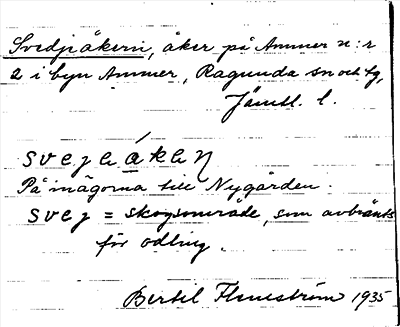 Svedjeåkern, åker på Ammer n:r
2 i byn Ammer, Ragunda sn och tg,
Jämtl. l.
svejeåkeɳ
På inägorna till Nygården.
svej = skogsområde, som avbränts
för odling.
Bertil Flemström 1935